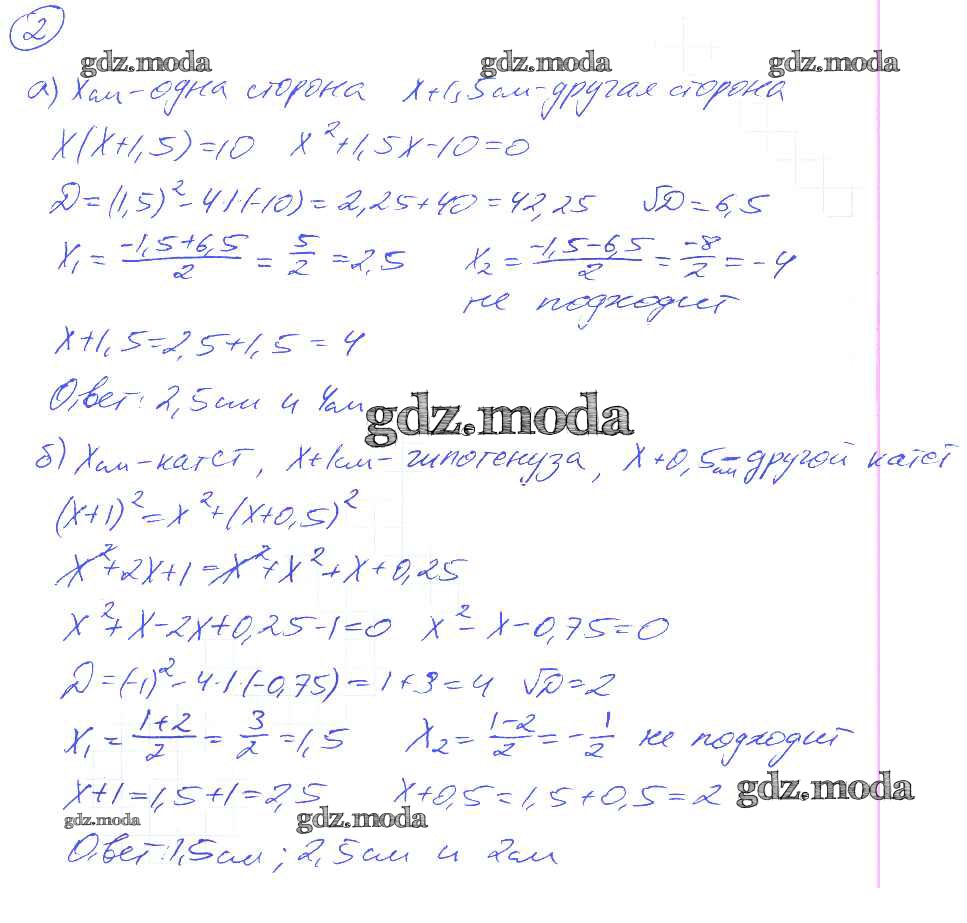 2
gdz.moda gdz.moda gdz.moda
а) Xсм - одна сторона X+1,5см - другая сторона
X(X+1,5)=10 X²+1,5X-10=0
D=(1,5)²-4·1·(-10)=2,25+40=42,25 √D=6,5
X₁ = (-1,5+6,5)/2 = 5/2 = 2,5 X₂ = (-1,5-6,5)/2 = -8/2 = -4
не подходит
X+1,5=2,5+1,5=4
Ответ: 2,5см и 4см
gdz.moda
б) Xсм - катет, X+1см - гипотенуза, X+0,5см - другой катет
(X+1)²=X²+(X+0,5)²
X²+2X+1=X²+X²+X+0,25
X²+X-2X+0,25-1=0 X²-X-0,75=0
D=(-1)²-4·1·(-0,75)=1+3=4 √D=2
X₁ = (1+2)/2 = 3/2 = 1,5 X₂ = (1-2)/2 = -1/2 не подходит
X+1=1,5+1=2,5 X+0,5=1,5+0,5=2
gdz.moda
gdz.moda gdz.moda
Ответ: 1,5см; 2,5см и 2см